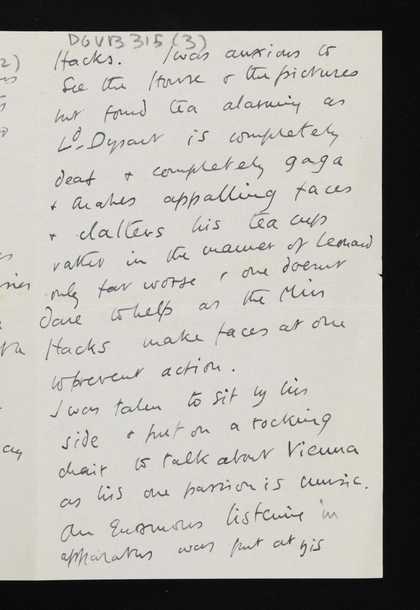 DGVB 315 (3)
Hacks. I was anxious to
see the House & the pictures
but found tea alarming as
Ld. Dysart is completely
deaf & completely gaga
& makes appalling faces
& clatters his tea cup
rather in the manner of Leonard
only far worse & one doesnt
dare to help as the Miss
Hacks make faces at one
to prevent action.
I was taken to sit by his
side & put on a rocking
chair to talk about Vienna
as his one passion is music.
An Enormous listening in
apparatus was put at his